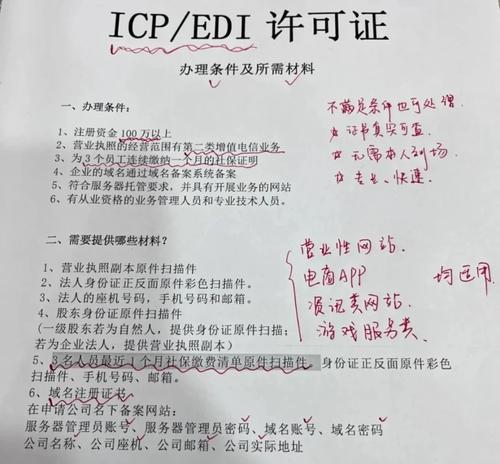 ICP/EDI 许可证
办理条件及所需材料
一、办理条件：
1、注册资金100万以上
2、营业执照的经营范围有第二类增值电信业务
3、为3个员工连续缴纳一个月的社保证明
4、企业的域名通过域名备案系统备案
5、符合服务器托管要求，并具有开展业务的网站
6、有从业资格的业务管理人员和专业技术人员。
不满足条件也可处理
证书真实可查
无需本人到场
专业、快速
二、需要提供哪些材料？
1、营业执照副本原件扫描件
2、法人身份证正反面原件彩色扫描件。
3、法人的座机号，手机号码和邮箱。
4、股东身份证原件扫描件
(一级股东若为自然人，提供身份证原件扫描；
若为企业法人，提供营业执照副本)
5、3名人员最近1个月社保缴费清单原件扫描件。身份证正反面原件彩色
扫描件、手机号码、邮箱。
6、域名注册证书
在申请公司名下备案网站：
服务器管理员账号、服务器管理员密码、域名账号、域名密码
公司名称、公司座机、公司邮箱、公司实际地址
营业性网站
电商APP
资讯类网站
游戏服务类
均适用